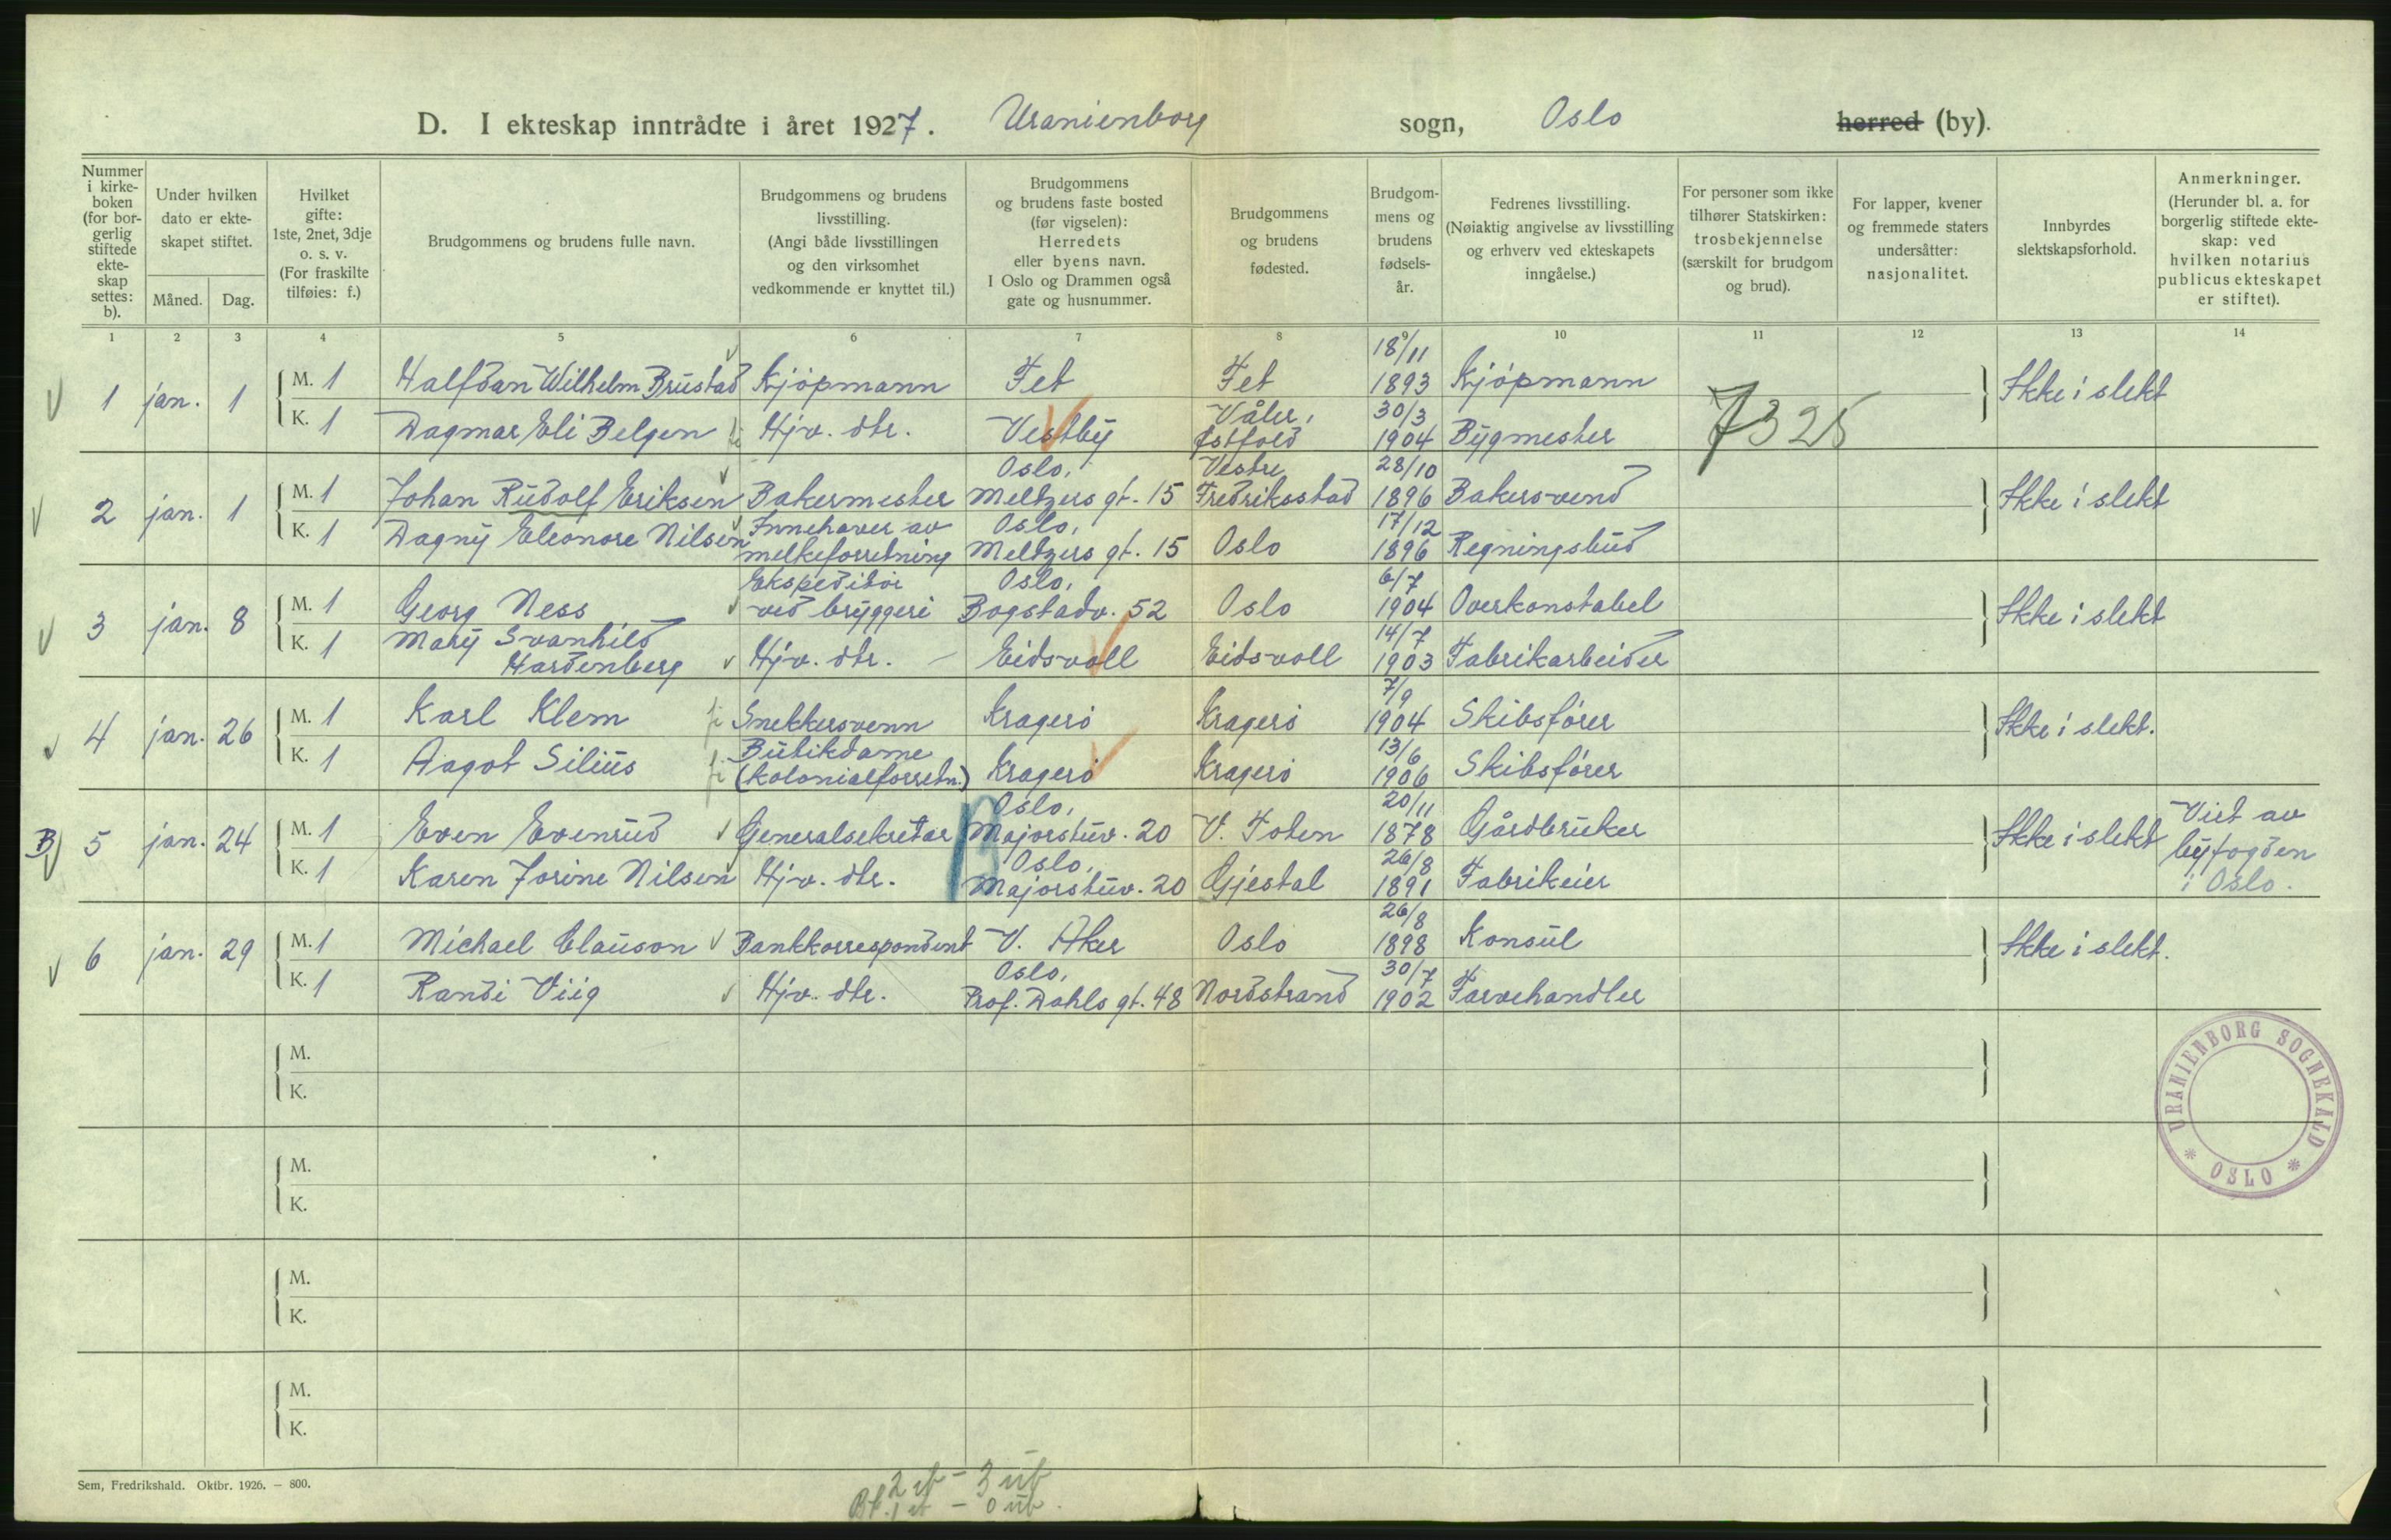 D. I ekteskap inntrådte i året 1927. Uranienborg sogn, Oslo herred (by).
Nummer i kirke-boken (for bor-gerlig stiftede ekte-skap settes: b).
Under hvilken dato er ekte-skapet stiftet.
Måned. Dag.
Hvilket gifte: 1ste, 2net, 3dje o. s. v. (For fraskilte tilføies: f.)
Brudgommens og brudens fulle navn.
Brudgommens og brudens livsstilling. (Angi både livsstillingen og den virksomhet vedkommende er knyttet til.)
Brudgommens og brudens faste bosted (før vigselen): Herredets eller byens navn. I Oslo og Drammen også gate og husnummer.
Brudgommens og brudens fødested.
Brudgom-mens og brudens fødsels-år.
Fedrenes livsstilling. (Nøiaktig angivelse av livsstilling og erhverv ved ekteskapets inngåelse.)
For personer som ikke tilhører Statskirken: trosbekjennelse (særskilt for brudgom og brud).
For lapper, kvener og fremmede staters undersåtter: nasjonalitet.
Innbyrdes slektskapsforhold.
Anmerkninger. (Herunder bl. a. for borgerlig stiftede ekte-skap: ved hvilken notarius publicus ekteskapet er stiftet).
1 2 3 4 5 6 7 8 9 10 11 12 13 14
1 jan. 1 M. 1 Halfdan Wilhelm Brustad Kjöpmann Fet Fet 18/11 1893 Kjöpmann Ikke i slekt
K. 1 Dagmar Eli Belgen Hjv. dtr. Vestby Våler, Østfold 30/3 1904 Bygmester
7325
2 jan. 1 M. 1 Johan Rudolf Eriksen Bakermester Oslo, Meltzers gt. 15 Vestre Fredriksstad 28/10 1896 Bakersvend Ikke i slekt
K. 1 Dagny Eleonore Nilsen Innehaver av melkeforretning Oslo, Meltzers gt. 15 Oslo 17/12 1896 Regningsbud
3 jan. 8 M. 1 Georg Ness Ekspeditör ved bryggeri Oslo, Bogstadv. 52 Oslo 6/7 1904 Overkonstabel Ikke i slekt
K. 1 Mary Svanhild Hardenberg Hjv. dtr. Eidsvoll Eidsvoll 14/7 1903 Fabrikarbeider
4 jan. 26 M. 1 Karl Klem Snekkersvenn Kragerö Kragerö 7/9 1904 Skibsförer Ikke i slekt.
K. 1 Aagot Silius Butikdame (kolonialforretn.) Kragerö Kragerö 13/6 1906 Skibsförer
B 5 jan. 24 M. 1 Even Evenrud Generalsekretær Oslo, Majorstuv. 20 V. Toten 20/11 1878 Gårdbruker Ikke i slekt Viet av byfogden i Oslo.
K. 1 Karen Jorine Nilsen Hjv. dtr. Oslo, Majorstuv. 20 Gjestal 26/8 1891 Fabrikeier
6 jan. 29 M. 1 Michael Clauson Bankkorrespondent V. Aker Oslo 26/8 1898 Konsul Ikke i slekt.
K. 1 Randi Viig Hjv. dtr. Oslo, Prof. Dahls gt. 48 Nordstrand 30/7 1902 Farvehandler
M.
K.
M.
K.
M.
K.
M.
K.
URANIENBORG SOGNEKALD * OSLO *
Sem, Fredrikshald. Oktbr. 1926. — 800.